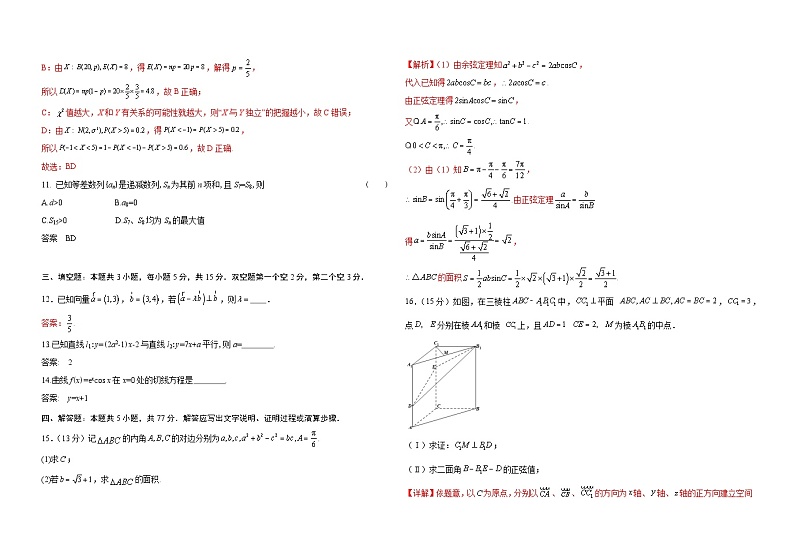 B：由X：B(20,p),E(X)=8，得E(X)=np=20p=8，解得p=2/5，
所以D(X)=np(1-p)=20×2/5×3/5=4.8，故B正确；
C：χ²值越大，X和Y有关系的可能性就越大，则“X与Y独立”的把握越小，故C错误；
D：由X：N(2,σ²),P(X>5)=0.2，得P(X<-1)=P(X>5)=0.2，
所以P(-1<X<5)=1-P(X<-1)-P(X>5)=0.6，故D正确.
故选：BD
11. 已知等差数列{aₙ}是递减数列,Sₙ为其前n项和,且S₇=S₈,则 （ ）
A.d>0 B.a₈=0
C.S₁₅>0 D.S₇、S₈均为Sₙ的最大值
答案 BD
三、填空题：本题共3小题，每小题5分，共15分．双空题第一个空2分，第二个空3分．
12．已知向量a=(1,3)，b=(3,4)，若(a-λb)⊥b，则λ=____．
答案：3/5．
13 已知直线l₁:y=(2a²-1)x-2与直线l₂:y=7x+a平行,则a=________.
答案: 2
14.曲线f(x)=eˣcos x在x=0处的切线方程是________.
答案: y=x+1
四、解答题：本题共5小题，共77分．解答应写出文字说明、证明过程或演算步骤．
15.（13分）记△ABC的内角A,B,C的对边分别为a,b,c,a²+b²-c²=bc,A=π/6.
(1)求C；
(2)若b=√3+1，求△ABC的面积.
【解析】（1）由余弦定理知a²+b²-c²=2abcosC，
代入已知得2abcosC=bc，∴2acosC=c.
由正弦定理得2sinAcosC=sinC，
又Q A=π/6,∴sinC=cosC,∴tanC=1.
Q 0<C<π,∴C=π/4.
（2）由（1）知B=π-π/4-π/6=7π/12，
∴sinB=sin(π/4+π/3)=(√6+√2)/4.由正弦定理a/sinA=b/sinB
得a=bsinA/sinB=((√3+1)×1/2)/((√6+√2)/4)=√2，
∴△ABC的面积S=1/2absinC=1/2×√2×(√3+1)×√2/2=(√3+1)/2.
16．（15分）如图，在三棱柱ABC-A₁B₁C₁中，CC₁⊥平面 ABC,AC⊥BC,AC=BC=2，CC₁=3，
点D，E分别在棱AA₁和棱 CC₁上，且AD=1 CE=2，M为棱A₁B₁的中点．
C₁
B₁
M
A₁
E
D
C
B
A
（Ⅰ）求证：C₁M⊥B₁D；
（Ⅱ）求二面角B-B₁E-D的正弦值；
【详解】依题意，以C为原点，分别以CA、CB、CC₁的方向为x轴、y轴、z轴的正方向建立空间